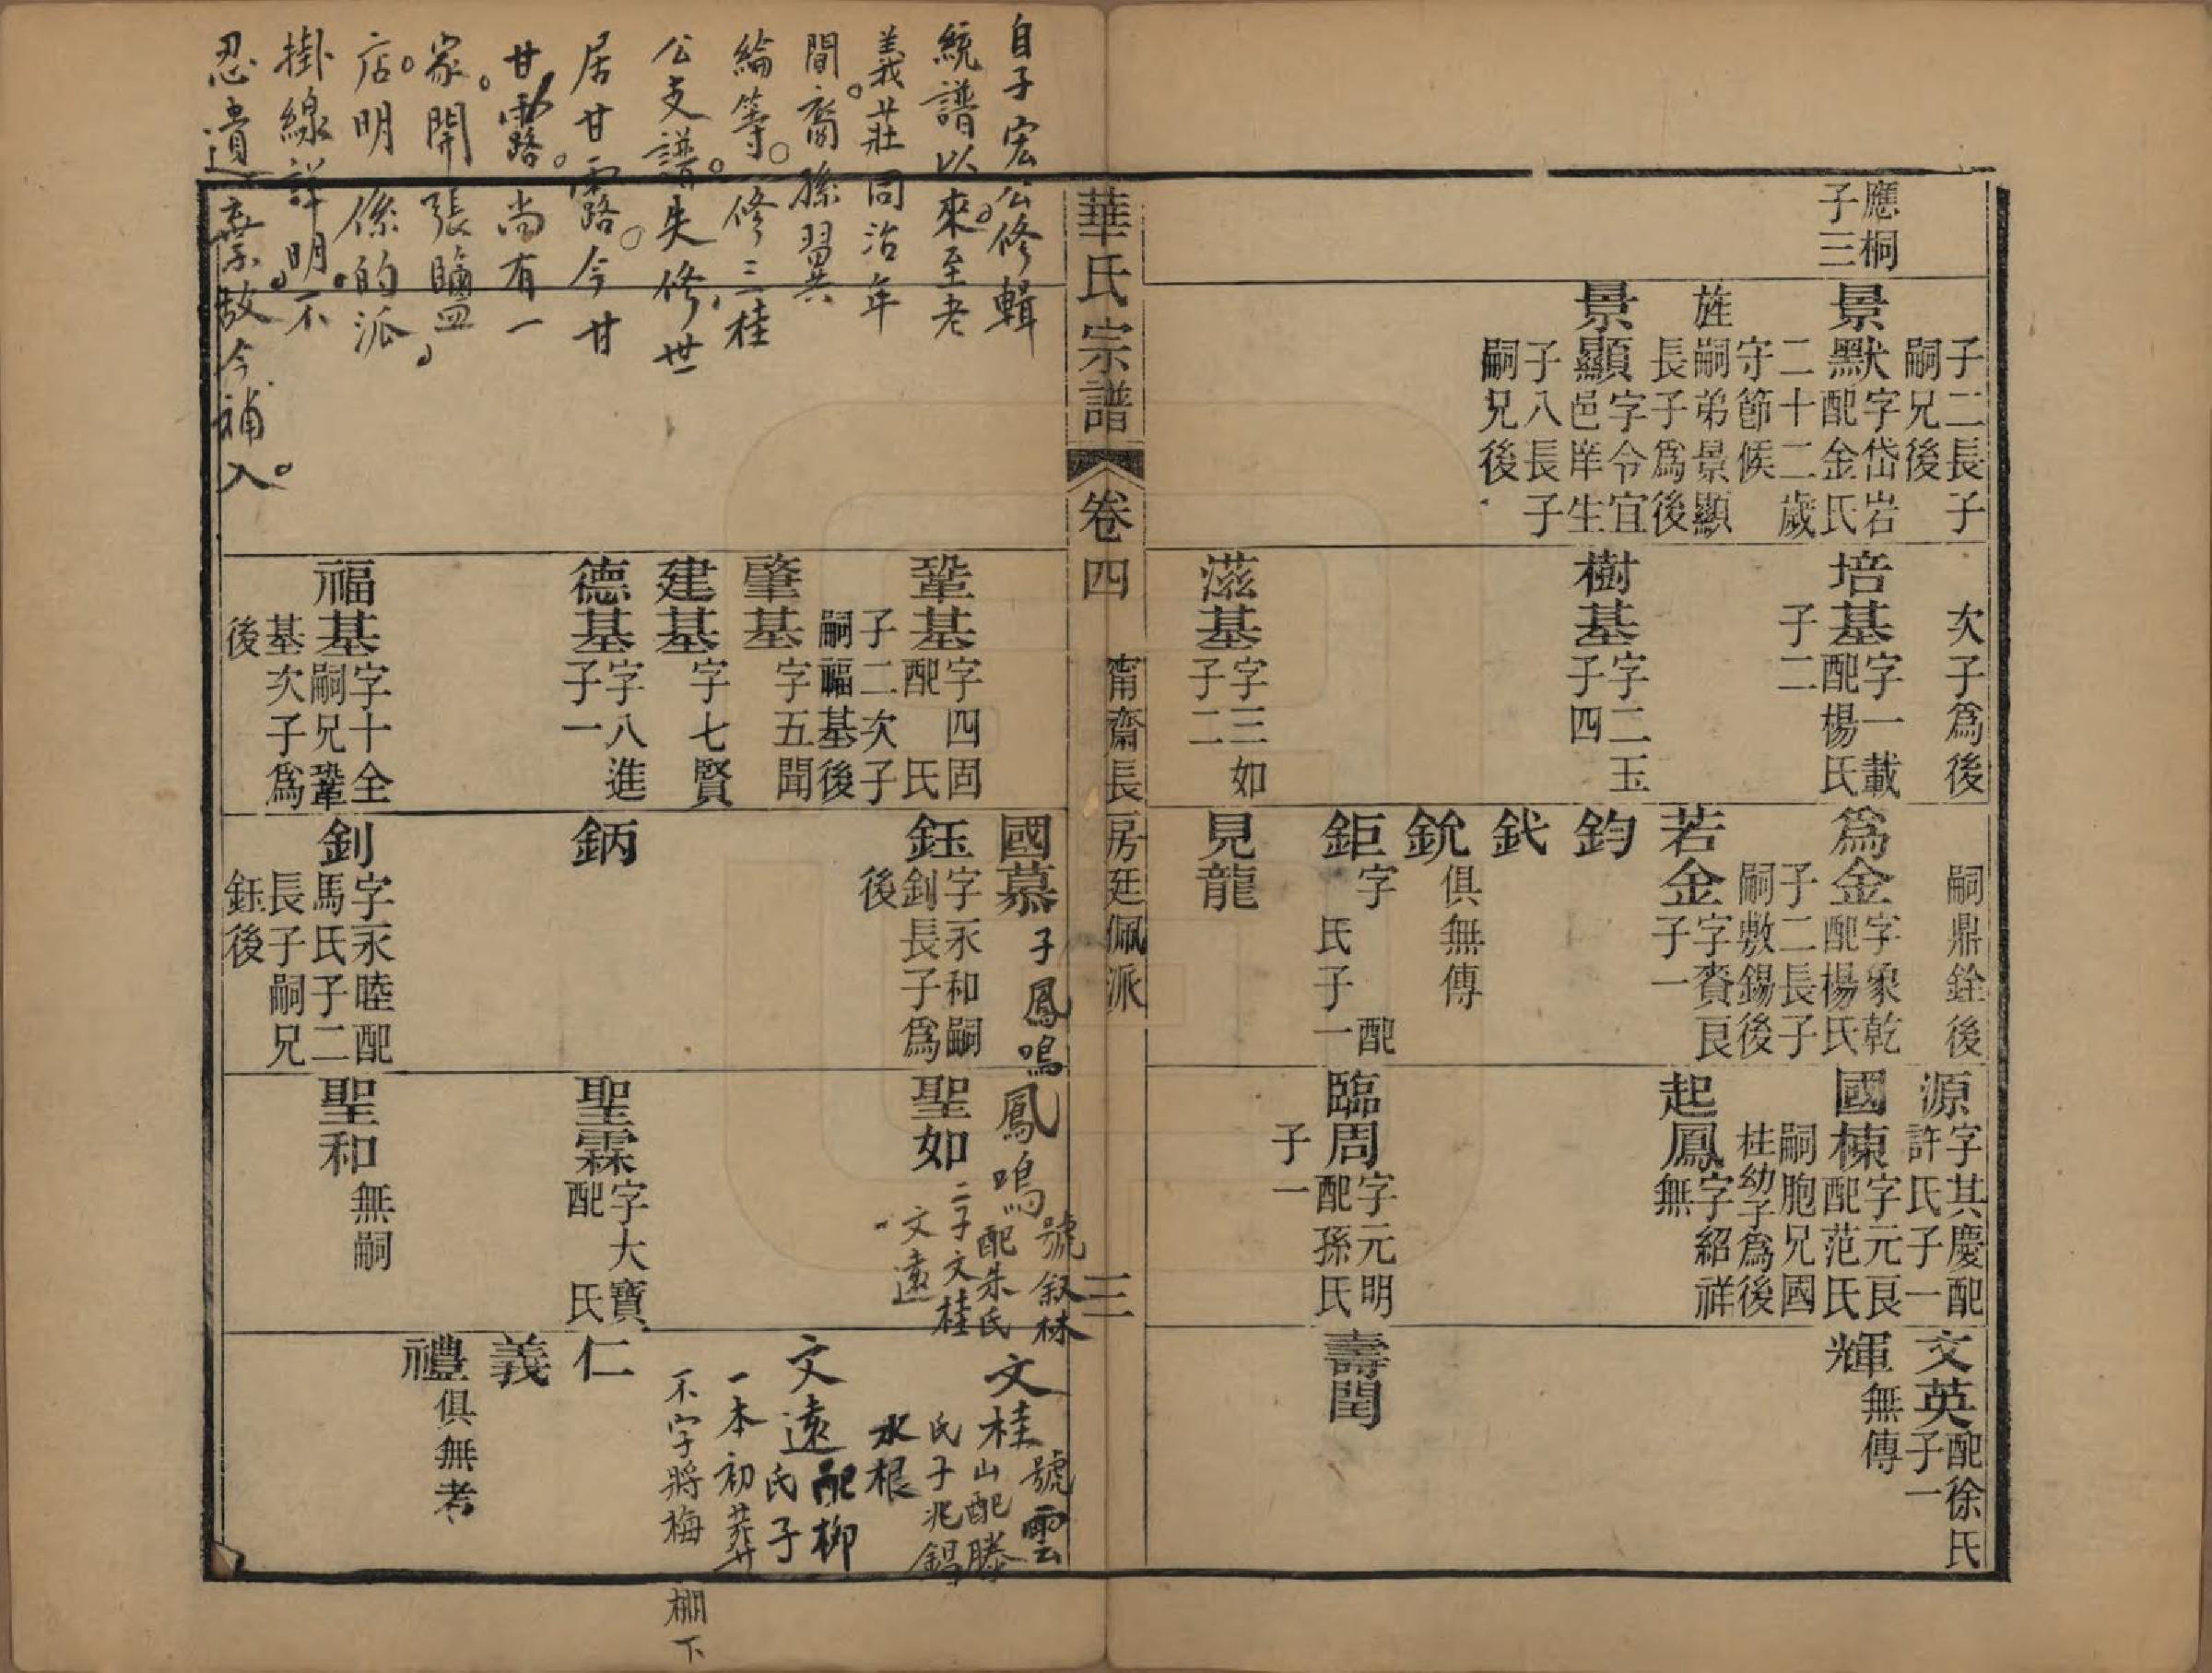 應桐
子三
子二長子
嗣兄後
景默字岱岩
配金氏
二十二歲
守節候
旌嗣弟景顯
長子爲後
景顯字令宜
邑庠生
子八長子
嗣兄後
次子爲後
培基字一載
配楊氏
子二
樹基字二玉
子四
滋基字三如
子二
嗣鼎銓後
爲金字象乾
配楊氏
子二長子
嗣敷錫後
若金字賚良
子一
鈞
釴
銳俱無傳
鉅字 配
氏子一
見龍
源字其慶配
許氏子一
國棟字元良
配范氏
嗣胞兄國
柱幼子爲後
起鳳字紹祥
無
臨周字元明
配孫氏
子一
文英配徐氏
子一
輝無傳
壽閏
華氏宗譜
卷四
甯齋長房廷佩派
三
自子宏公修輯
統譜以來至老
義莊同治年
間裔孫翼
綸等修三桂
公支譜失修世
居甘露今甘
甘露尚有一
家開張醢
店明係的派
掛線詳明不
忍遺棄故今補
入
鞏基字四固
配 氏
子二次子
嗣福基後
肇基字五聞
建基字七賢
德基字八進
子一
福基字十全
嗣兄鞏
基次子爲
後
國慕子鳳鳴
鈺字永和嗣
釗長子爲
後
鈵
釗字永睦配
馬氏子二
長子嗣兄
鈺後
鳳鳴號叙林
配朱氏
二子文桂
文遠
聖如
聖霖字大寶
配 氏
聖和無嗣
文桂號雲
山配滕
氏子兆錫
水根
文遠配柳
氏子
一本初葬
不字將梅
棚下
仁
義
禮俱無考